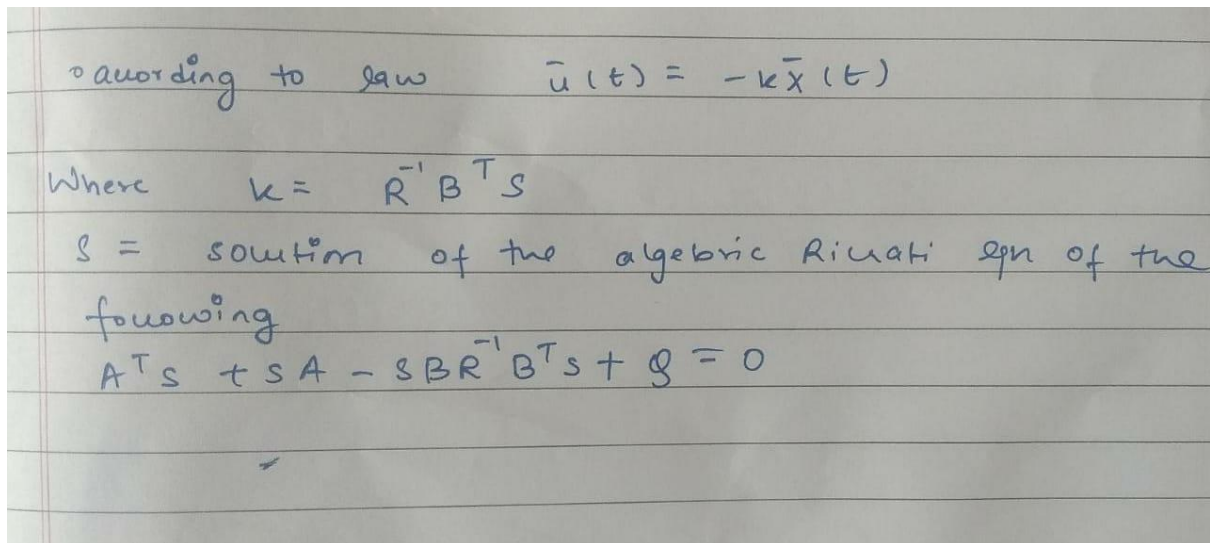 ◦ according to law ū(t) = -kx̄(t)
Where k = R⁻¹BᵀS
S = solution of the algebric Riccati eqn of the
following
AᵀS + SA - SBR⁻¹BᵀS + Q = 0